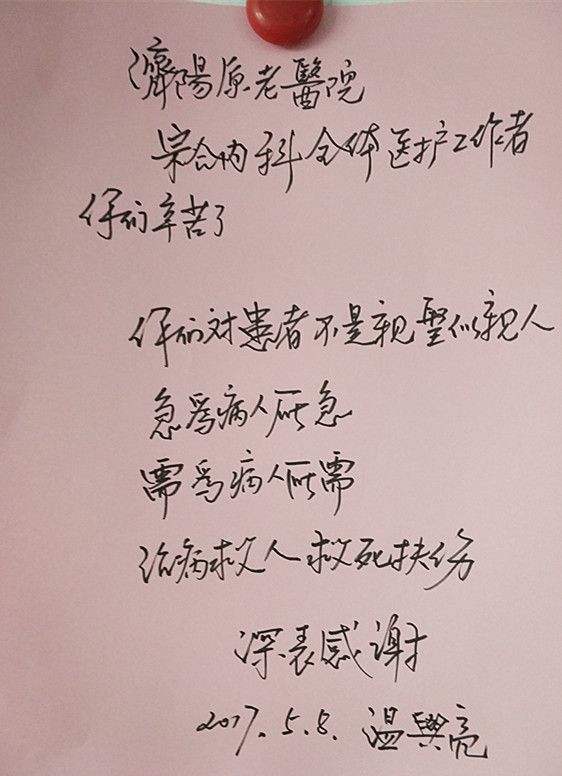 濟陽原老醫院
宗合内科全体医护工作者
伱们辛苦了
伱们对患者不是親聖似親人
急為病人所急
需為病人所需
治病救人救死扶伤
深表感谢
2017.5.8. 温興亮